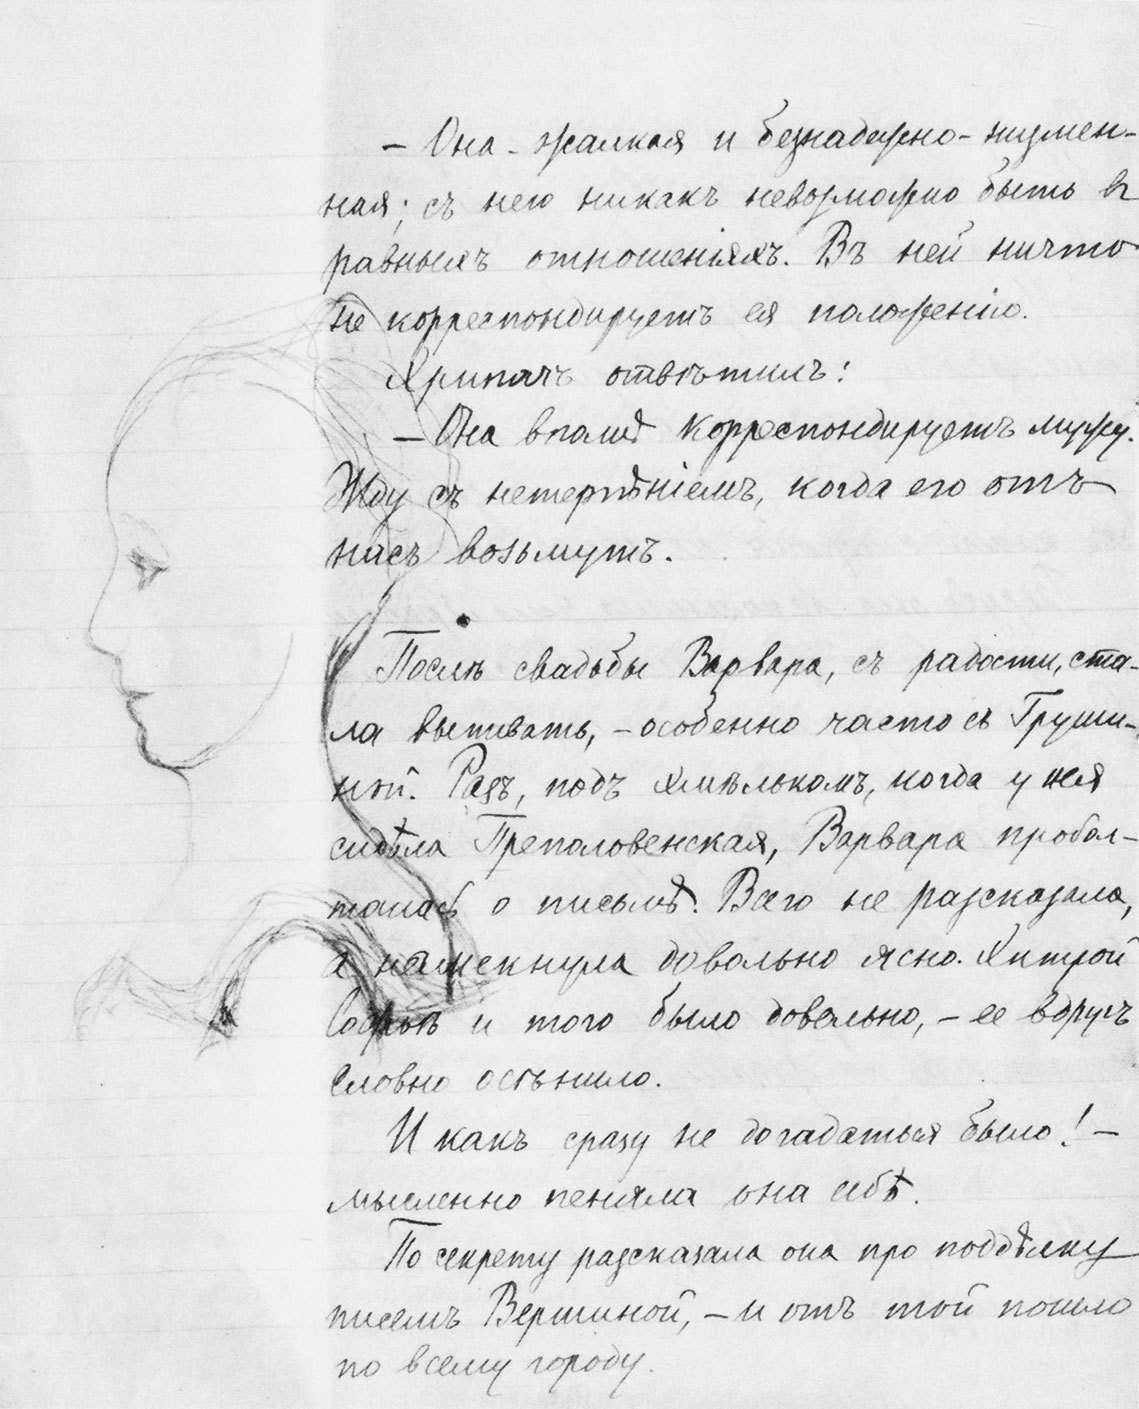 – Она – жалкая и безнадежно-низмен-
ная; съ нею никакъ невозможно быть въ
равныхъ отношеніяхъ. Въ ней ничто
не корреспондируетъ ея положенію.
Хрипачъ отвѣтилъ:
– Она вполнѣ корреспондируетъ мужу.
Жду съ нетерпѣніемъ, когда его отъ
насъ возьмутъ.
Послѣ свадьбы Варвара, съ радости, ста-
ла выпивать, – особенно часто съ Груши-
ной. Разъ, подъ хмѣлькомъ, когда у нея
сидѣла Преполовенская, Варвара пробол-
талась о письмѣ. Всего не разсказала,
а намекнула довольно ясно. Хитрой
Софьѣ и того было довольно, – ее вдругъ
словно осѣнило.
И какъ сразу не догадаться было! –
мысленно пеняла она себѣ.
По секрету разсказала она про поддѣлку
писемъ Вершиной, – и отъ той пошло
по всему городу.